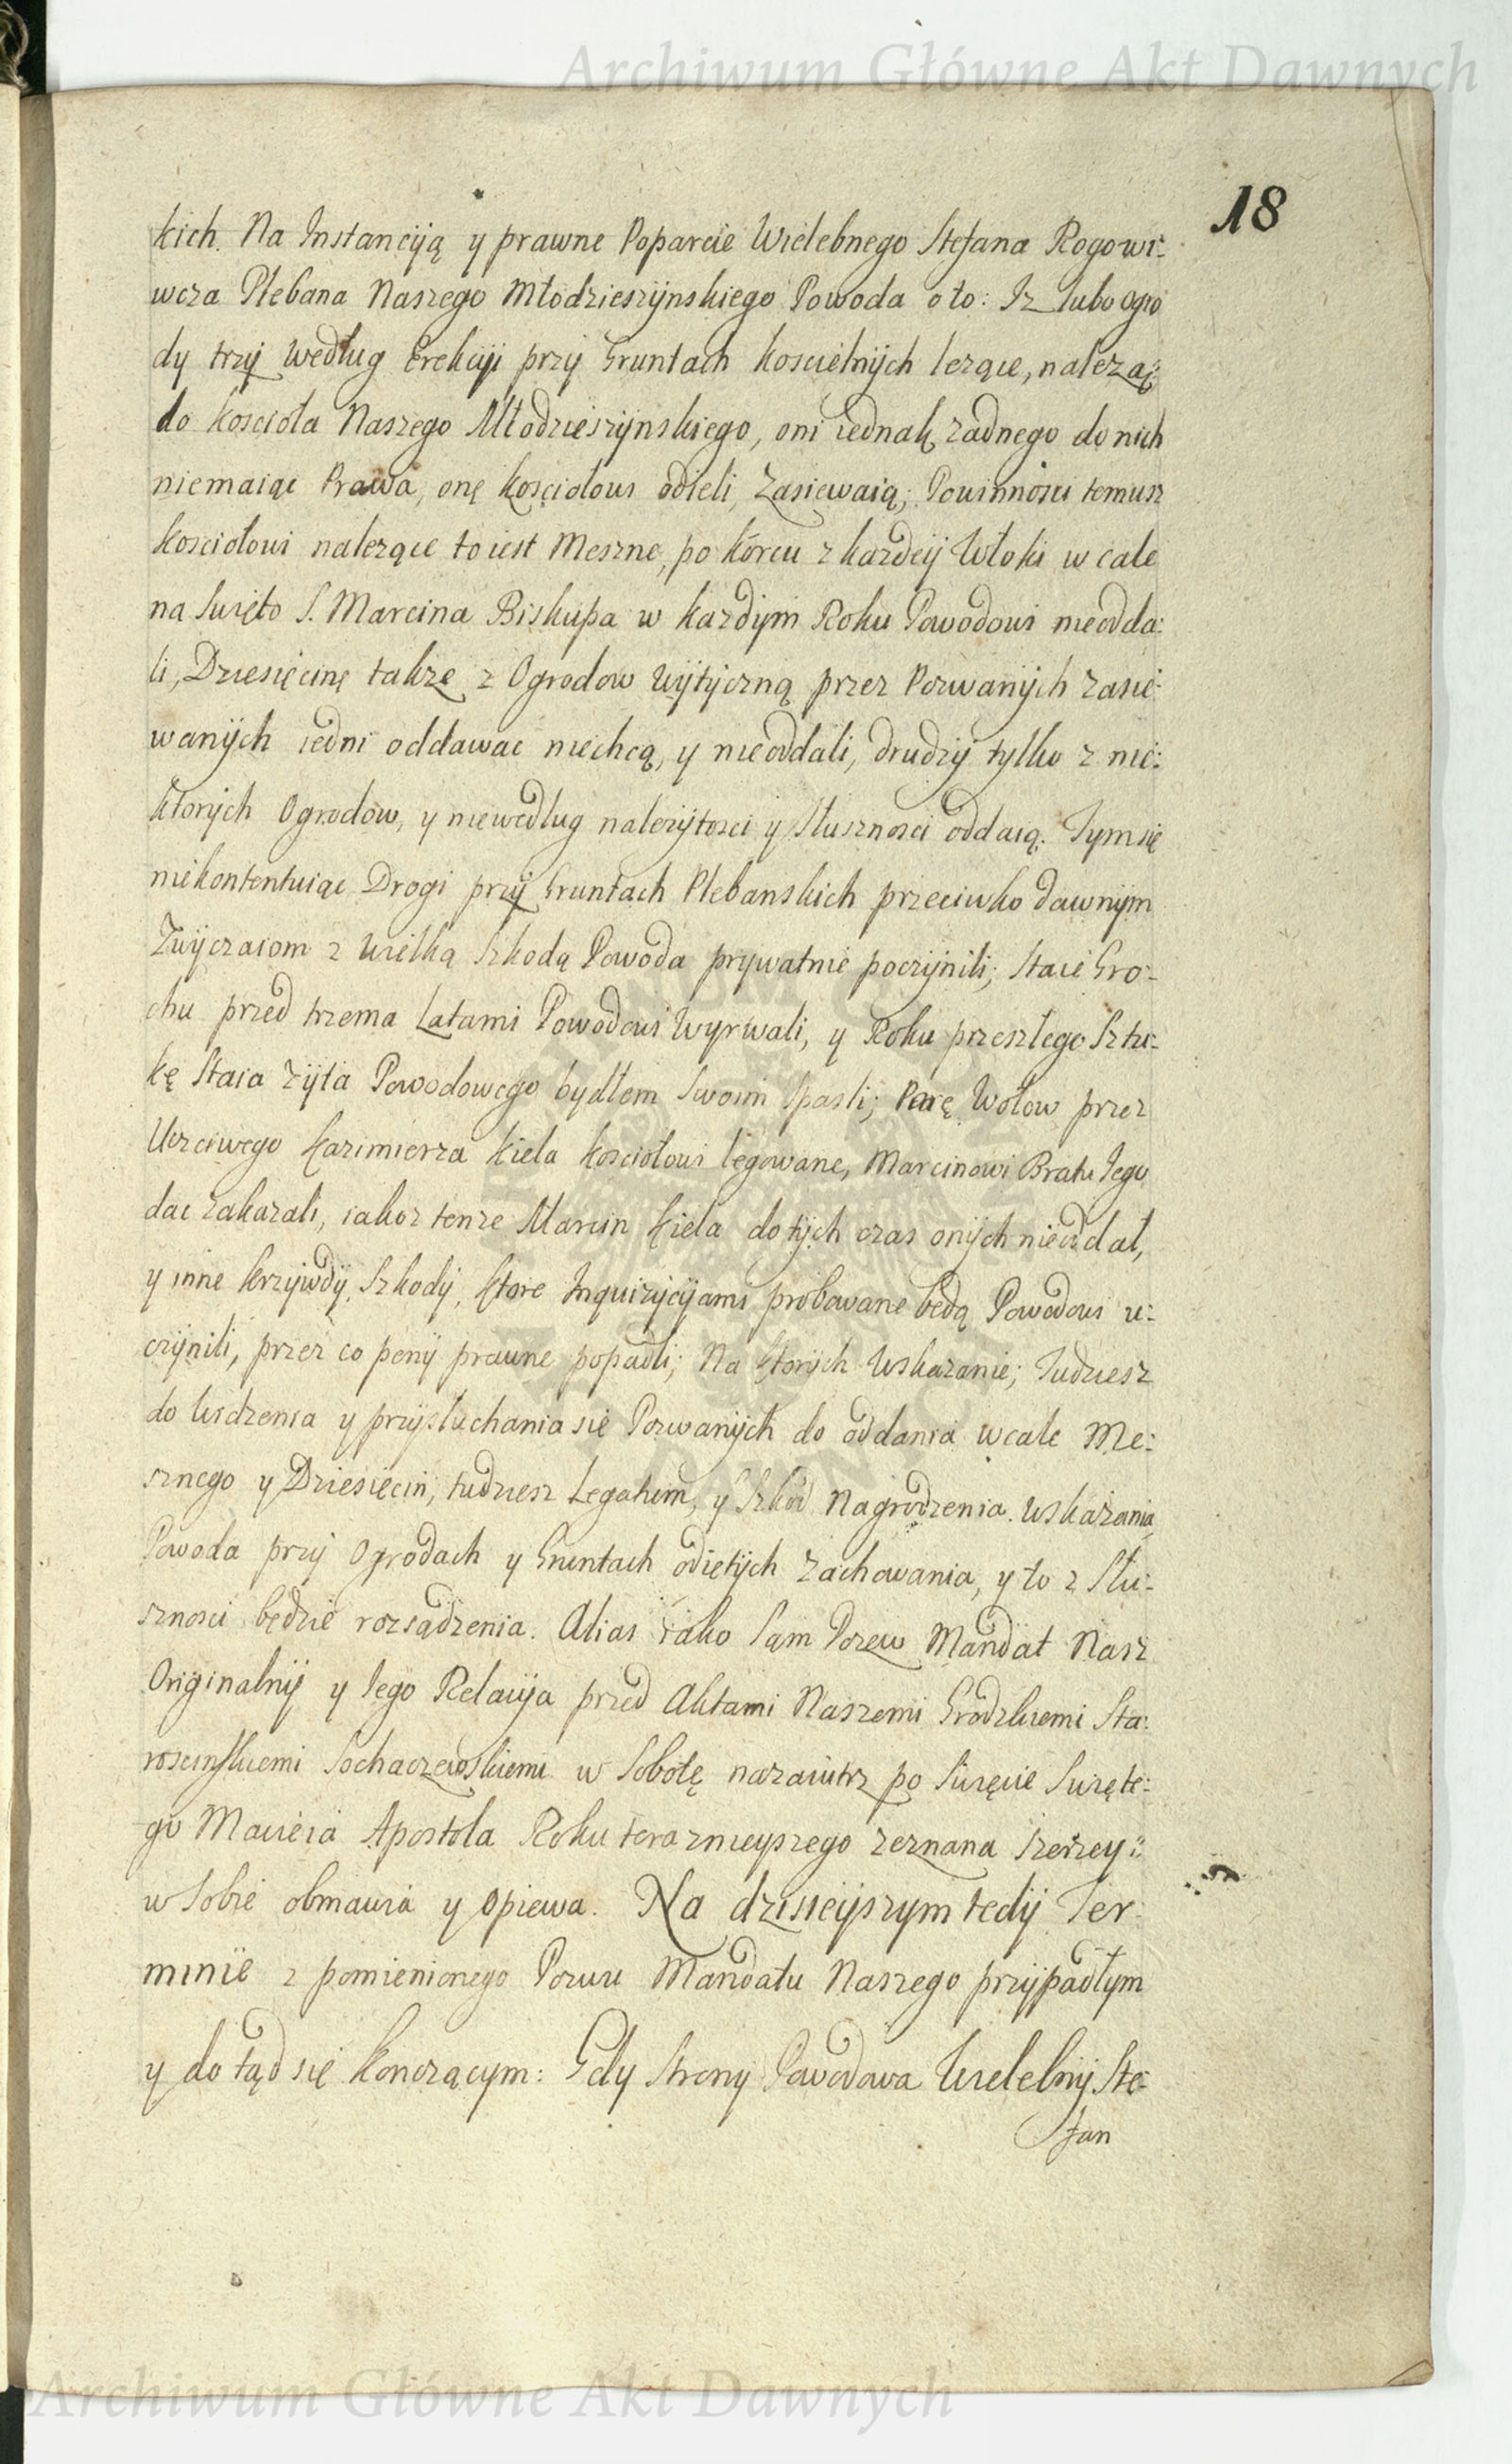 Archiwum Główne Akt Dawnych
18
kich. Na Instancÿią y prawne Poparcie Wielebnego Stefana Rogowi:
wcza Plebana Naszego Młodzieszÿnskiego Powoda oto: Iz lubo ogro
dy trzÿ według Erekcÿi przÿ Gruntach koscielnÿch lezące, nalezą:
do koscioła Naszego Młodzieszÿnskiego, oni iednak zadnego do nich
niemaiąc Prawa, onę kosciołowi odieli, Zasiewaią; Powinnosci temusz
kosciołowi nalezące to iest Meszne, po kórcu z kazdeÿ Włoki w cale
na Swięto S. Marcina Biskupa w kazdÿm Roku Powodowi nieodda:
li, Dziesięcinę takze z Ogrodow Wÿtÿczną przez Pozwanÿch zasie:
wanÿch iedni oddawac niechcą, y nieoddali, drudzÿ tylko z nie:
ktorÿch Ogrodów, y niewedług nalezÿtosci ÿ Słusznosci oddaią. Tym się
niekontentuiąc Drogi przÿ Gruntach Plebanskich przeciwko dawnÿm
Zwÿczaiom z wielką Szkodą Powoda prywatnie poczÿnili; Staie Gro-
chu przed trzema Latami Powodowi Wyrwali, y Roku przeszłego Sztu-
kę Staia Zÿta Powodowego bydłem Swoim Spasli; Parę Wołow przez
Uczciwego Kazimierza Kiela kosciołowi legowane, Marcinowi Bratu Iego
dac zakazali, iakoz tenze Marcin Kiela do tÿch czas onÿch nieoddał,
y inne krzÿwdÿ, Szkodÿ, ktore Inquizÿcÿami probowane będą Powodowi u:
czÿnili, przez co penÿ prawne popadli; Na ktorÿch Wskazanie; Tudziesz
do widzenia y przÿsłuchania się Pozwanÿch do oddania wcale Me:
sznego y Dziesięcin, tudziesz Legatum, y Szkód Nagrodzenia. Wskazania
Powoda przÿ Ogrodach y Gruntach odiętÿch zachowania, y to z Słu:
sznosci będzie rozsądzenia. Alias iako Sam Pozew Mandat Nasz
Originalnÿ y Iego Relacÿa przed Aktami Naszemi Grodzkiemi Sta:
roscinskiemi Sochaczewskiemi w Sobotę nazaiutrz po Swięcie Swięte:
go Macieia Apostoła Roku teraznieyszego zeznana szerzey:
w Sobie obmawia y Opiewa. Na dzisieÿszym tedÿ Ter:
minie z pomienionego Pozwu Mandatu Naszego przÿpadłym
y do tąd się konczącym: Gdy Stronÿ Powodowa Wielebnÿ Ste:
fan
Archiwum Główne Akt Dawnych